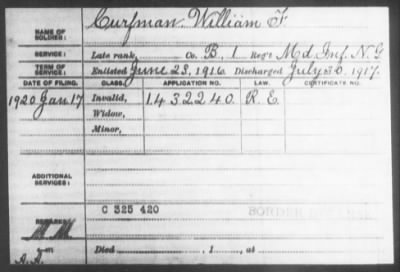 NAME OF SOLDIER: Curfman, William F.
SERVICE: Late rank, Co. B, 1 Reg't Md. Inf. N.G.
TERM OF SERVICE: Enlisted June 23, 1916. Discharged July 30, 1917.
DATE OF FILING. CLASS. APPLICATION NO. LAW. CERTIFICATE NO.
1920 Jan. 17 Invalid, 1432240. R.E.
Widow,
Minor,
ADDITIONAL SERVICES:
C 325 420 BORDER
REMARKS:
Died , 1 , at